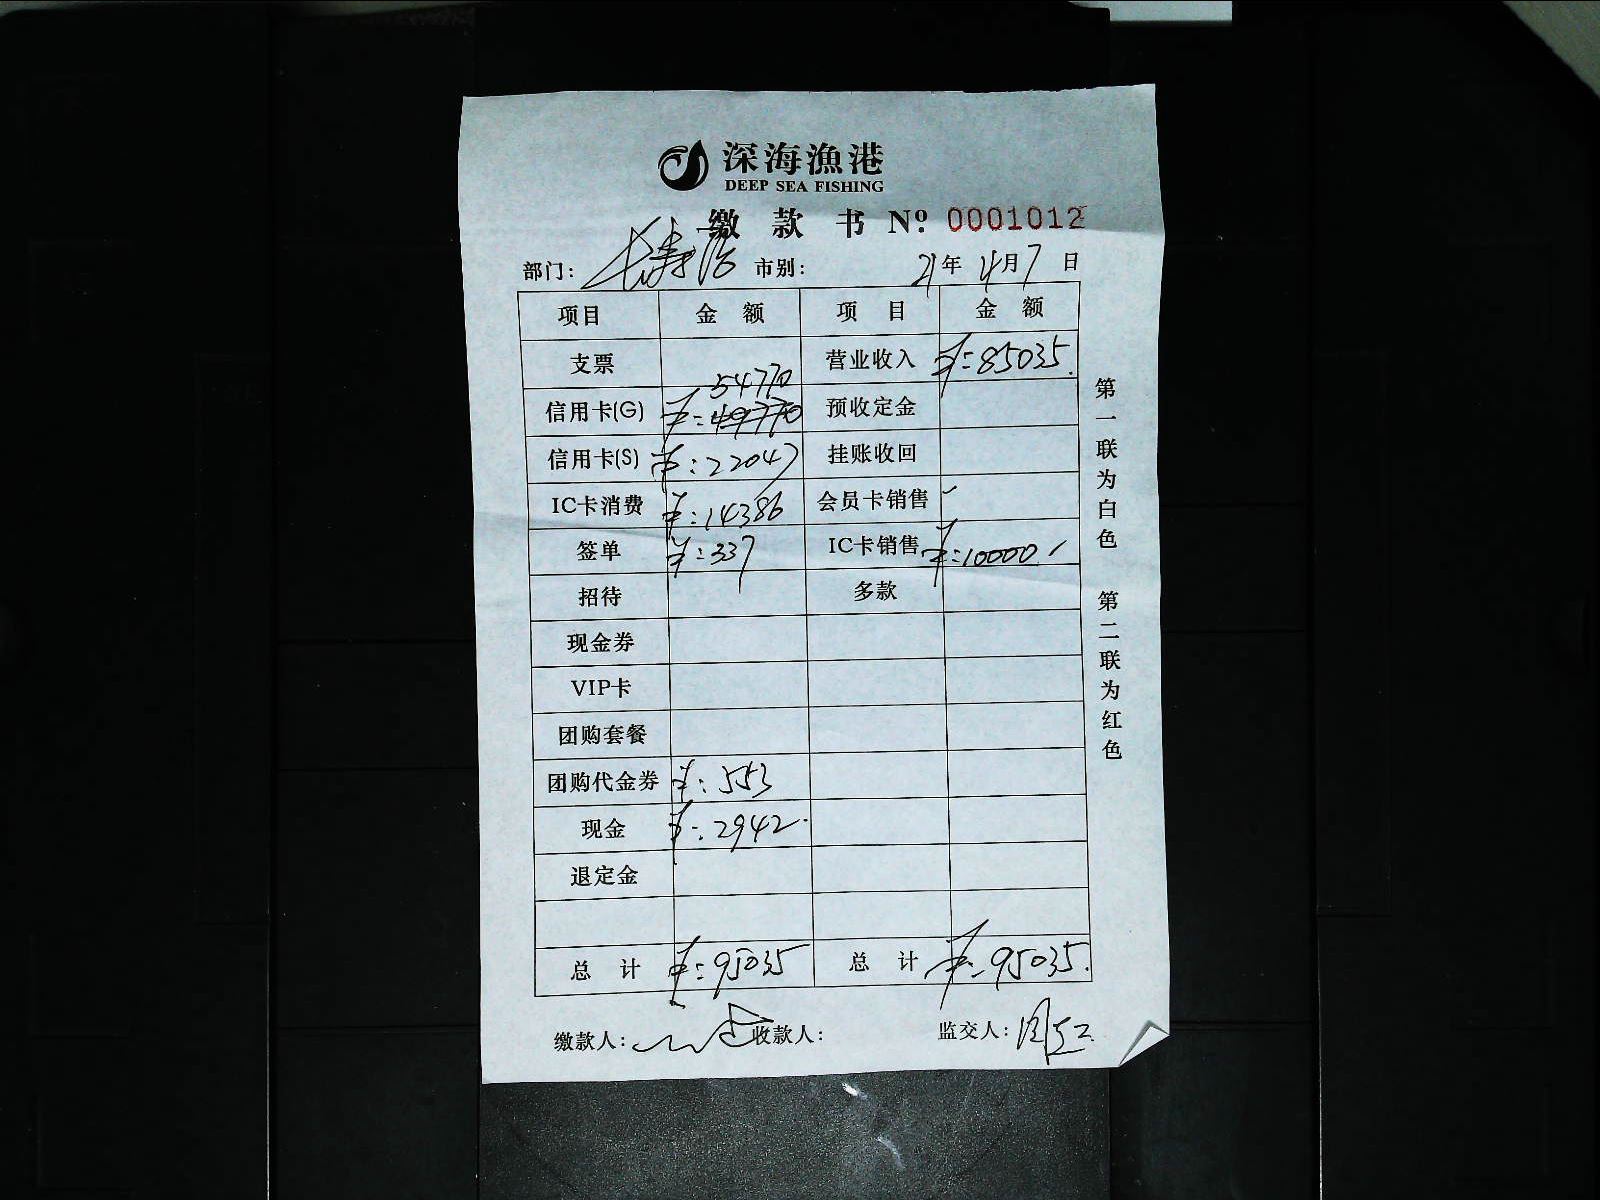 深海漁港
DEEP SEA FISHING
缴款书 Nº: 0001012
部门: 长寿路 市别: 21年4月7日
项目 金额 项目 金额
支票 营业收入 ¥:85035.
54770
信用卡(G) ¥:49770 预收定金
信用卡(S) ¥:22047 挂账收回
IC卡消费 ¥:14386 会员卡销售
签单 ¥:337 IC卡销售 ¥:10000
招待 多款
现金券
VIP卡
团购套餐
团购代金券 ¥:553
现金 ¥:2942
退定金
总计 ¥:95035 总计 ¥:95035.
缴款人: 收款人: 监交人:
第一联为白色 第二联为红色